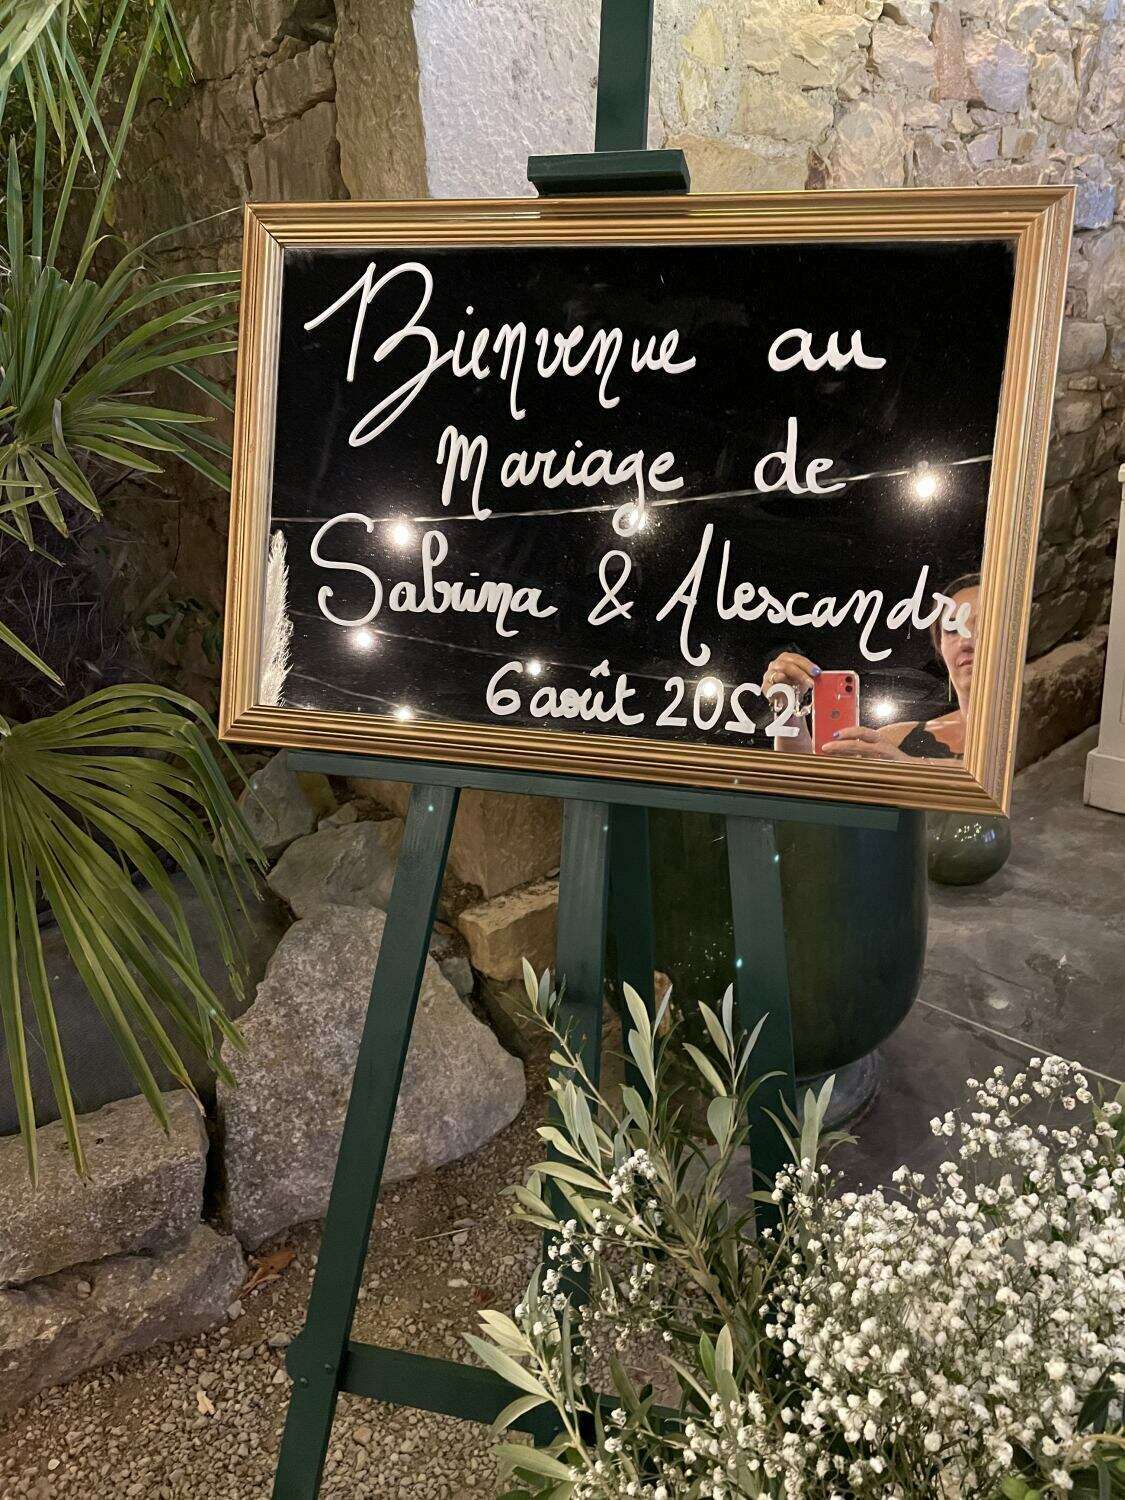 Bienvenue au
Mariage de
Sabrina & Alexandre
6 août 2022